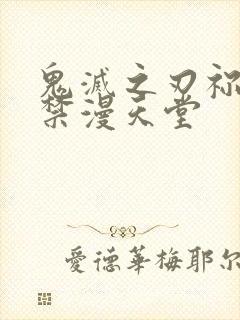 鬼滅之刃祢
禁漫天堂
愛德華梅耶尔